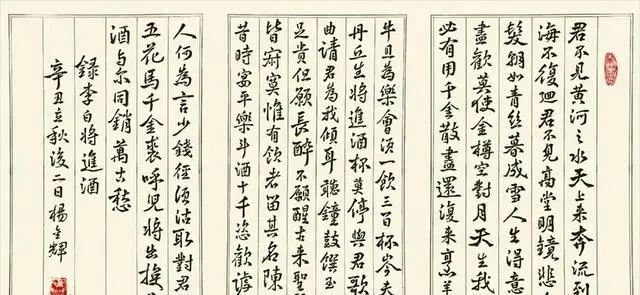 君不見黃河之水天上來奔流到
海不復迴君不見高堂明鏡悲
髮朝如青絲暮成雪人生得意
盡歡莫使金樽空對月天生我
必有用千金散盡還復来烹羊
牛且為樂會須一飲三百杯岑夫
丹丘生將進酒杯莫停與君歌
曲請君為我傾耳聽鐘鼓饌玉
足貴但願長醉不願醒古来聖
皆寂寞惟有飲者留其名陳
昔時宴平樂斗酒十千恣歡謔
人何為言少錢徑須沽取對君
五花馬千金裘呼兒將出換
酒与尔同銷萬古愁
錄李白將進酒
辛丑立秋後二日楊金輝